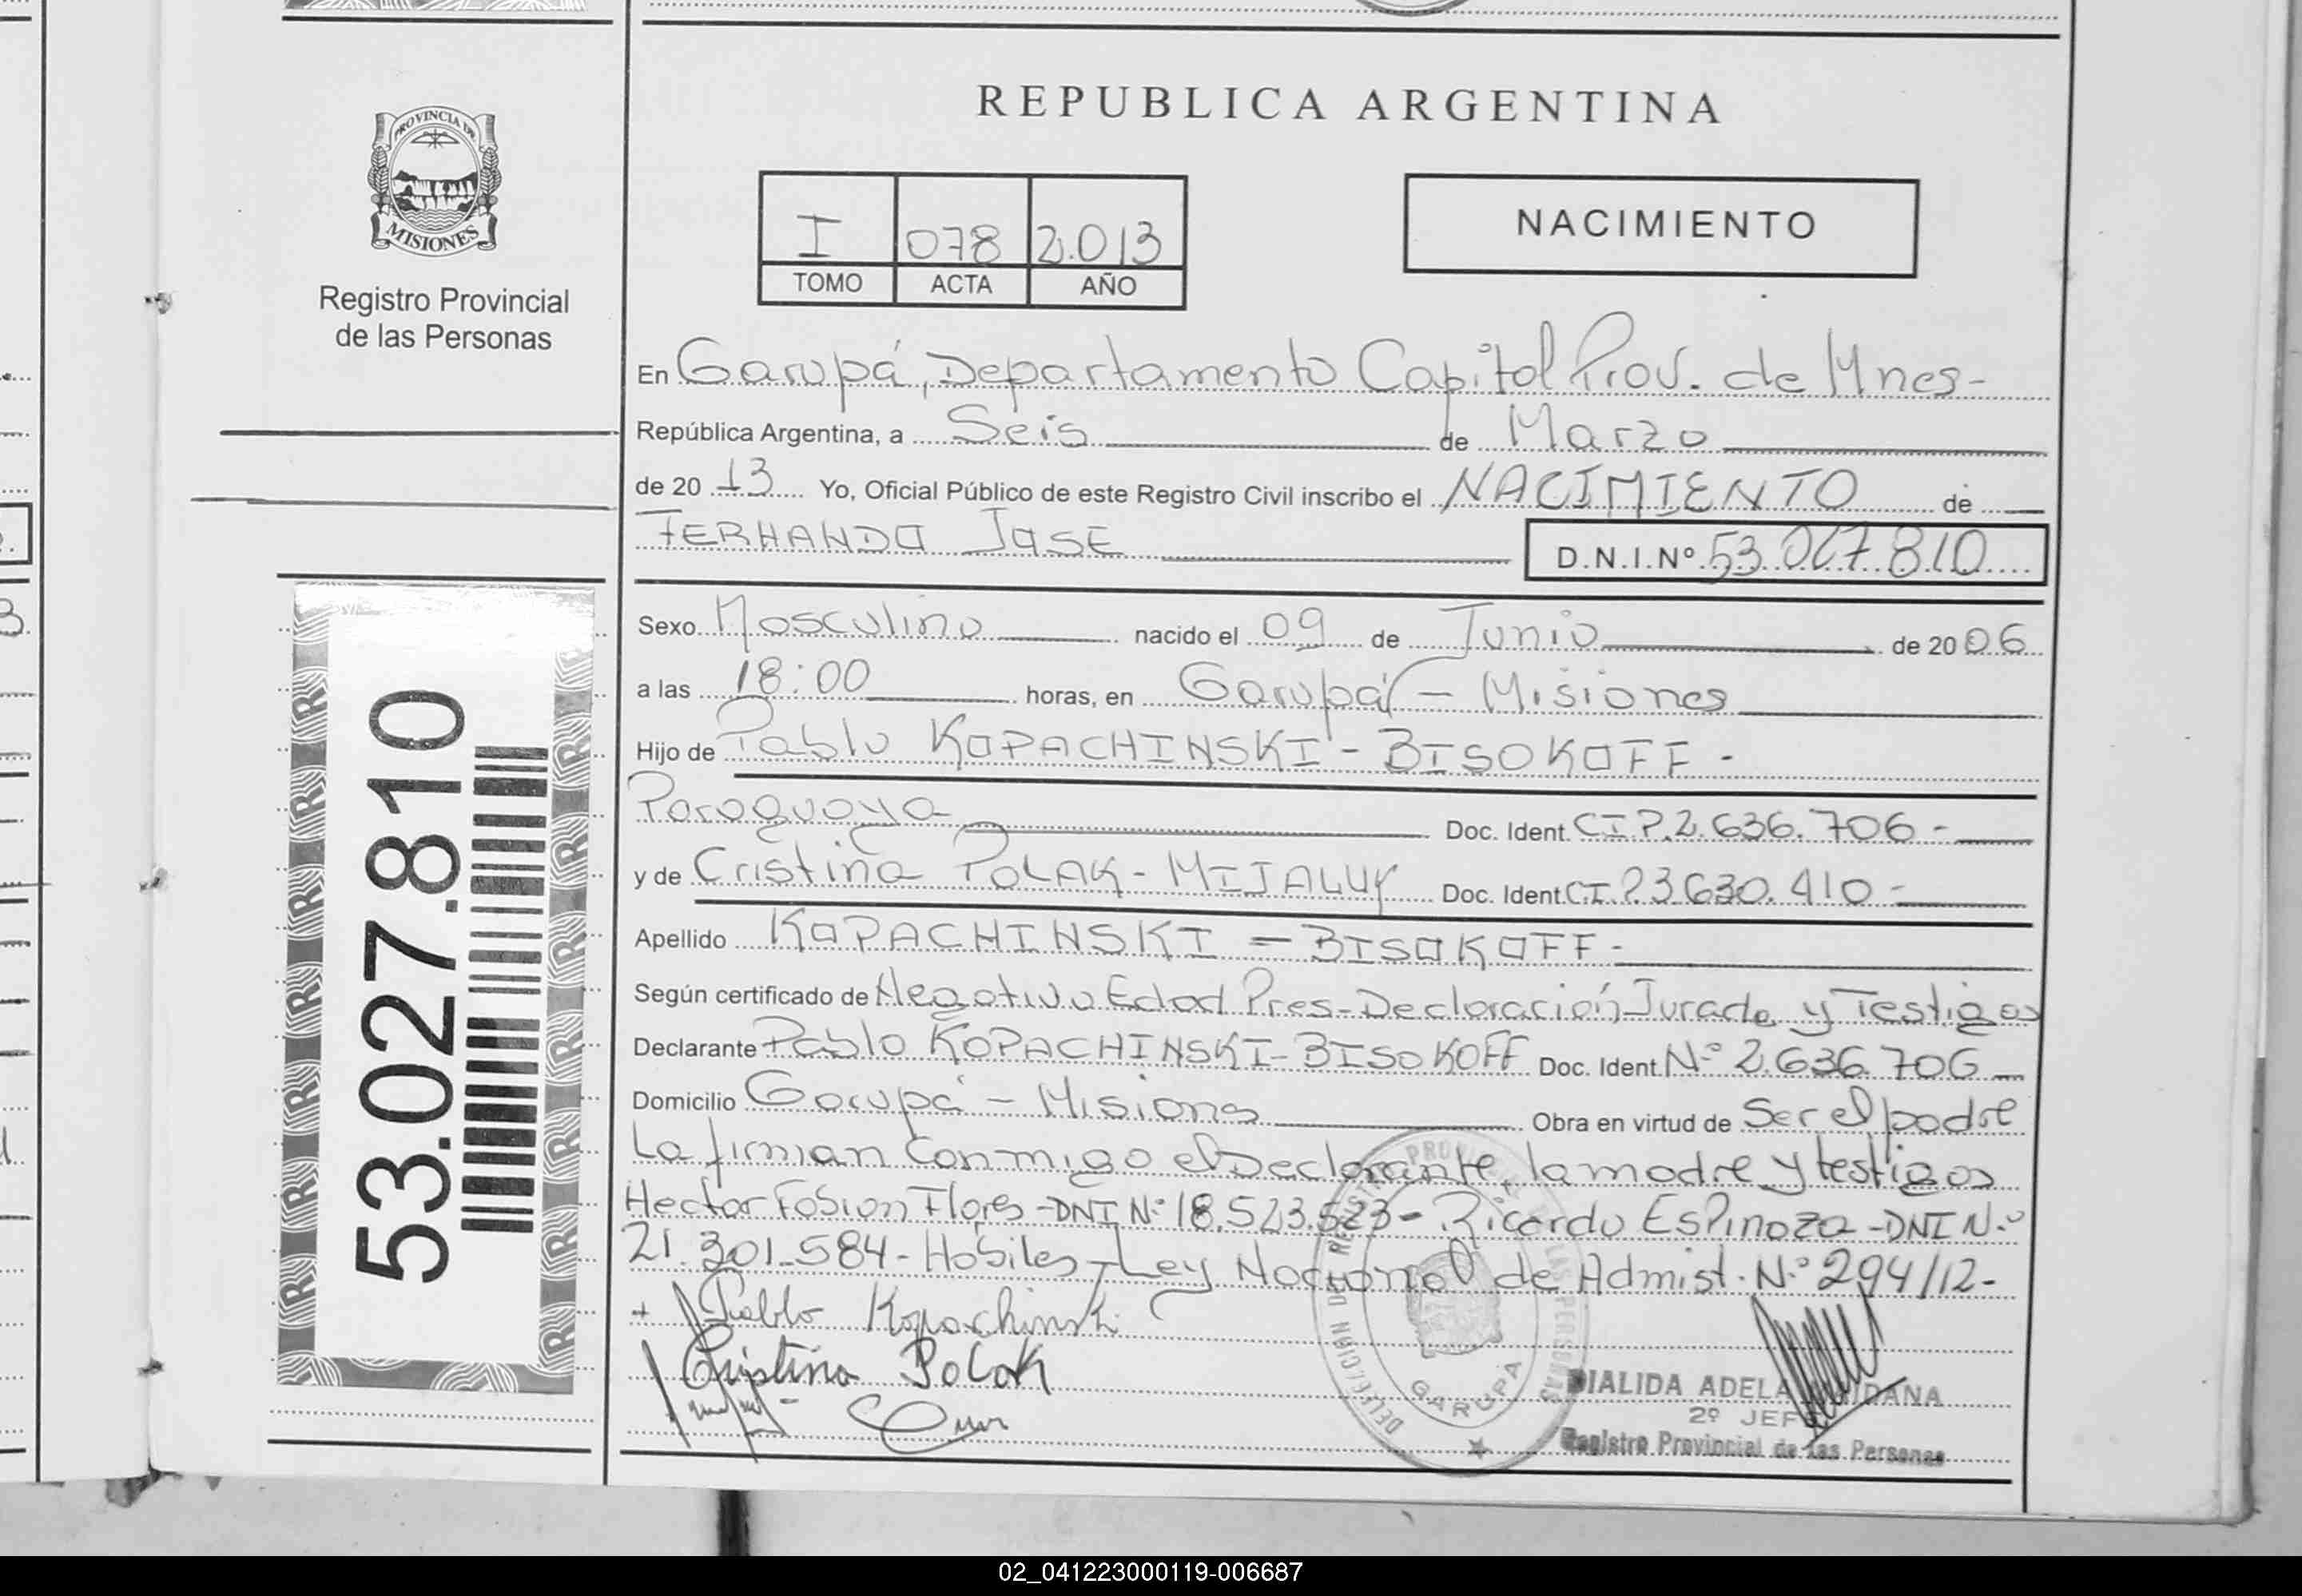 REPUBLICA ARGENTINA
PROVINCIA DE
MISIONES
Registro Provincial
de las Personas
I 078 2.013
TOMO ACTA AÑO
NACIMIENTO
En Garupá, Departamento Capital Prov. de Mnes-
República Argentina, a Seis de Marzo
de 20 13 Yo, Oficial Público de este Registro Civil inscribo el NACIMIENTO de
FERNANDO JOSE D.N.I.Nº 53.027.810
Sexo Masculino nacido el 09 de Junio de 20 06
a las 18:00 horas, en Garupá - Misiones
Hijo de Pablo KOPACHINSKI - BISOKOFF -
Paraguaya Doc. Ident. C.I.P. 2.636.706 -
y de Cristina POLAK - MIJALUK Doc. Ident. C.I.P. 3.630.410 -
Apellido KOPACHINSKI = BISOKOFF -
Según certificado de Negativo Edad Pres-Declaración Jurada y Testigos
Declarante Pablo KOPACHINSKI-BISOKOFF Doc. Ident. Nº 2.636.706
Domicilio Garupá - Misiones Obra en virtud de Ser el padre
La firman conmigo el Declarante, la madre y testigos
Hector Fabian Flores - DNI Nº 18.523.523 - Ricardo Espinoza - DNI Nº
21.301.584 - Hábiles - Ley Nacional de Admist. Nº 294/12-
Pablo Kopachinski
Cristina Polak
53.027.810
DELEGACION DE REGISTRO PROVINCIAL DE LAS PERSONAS
GARUPA
DIALIDA ADELA MAIDANA
2º JEFE
Registro Provincial de las Personas
02_041223000119-006687